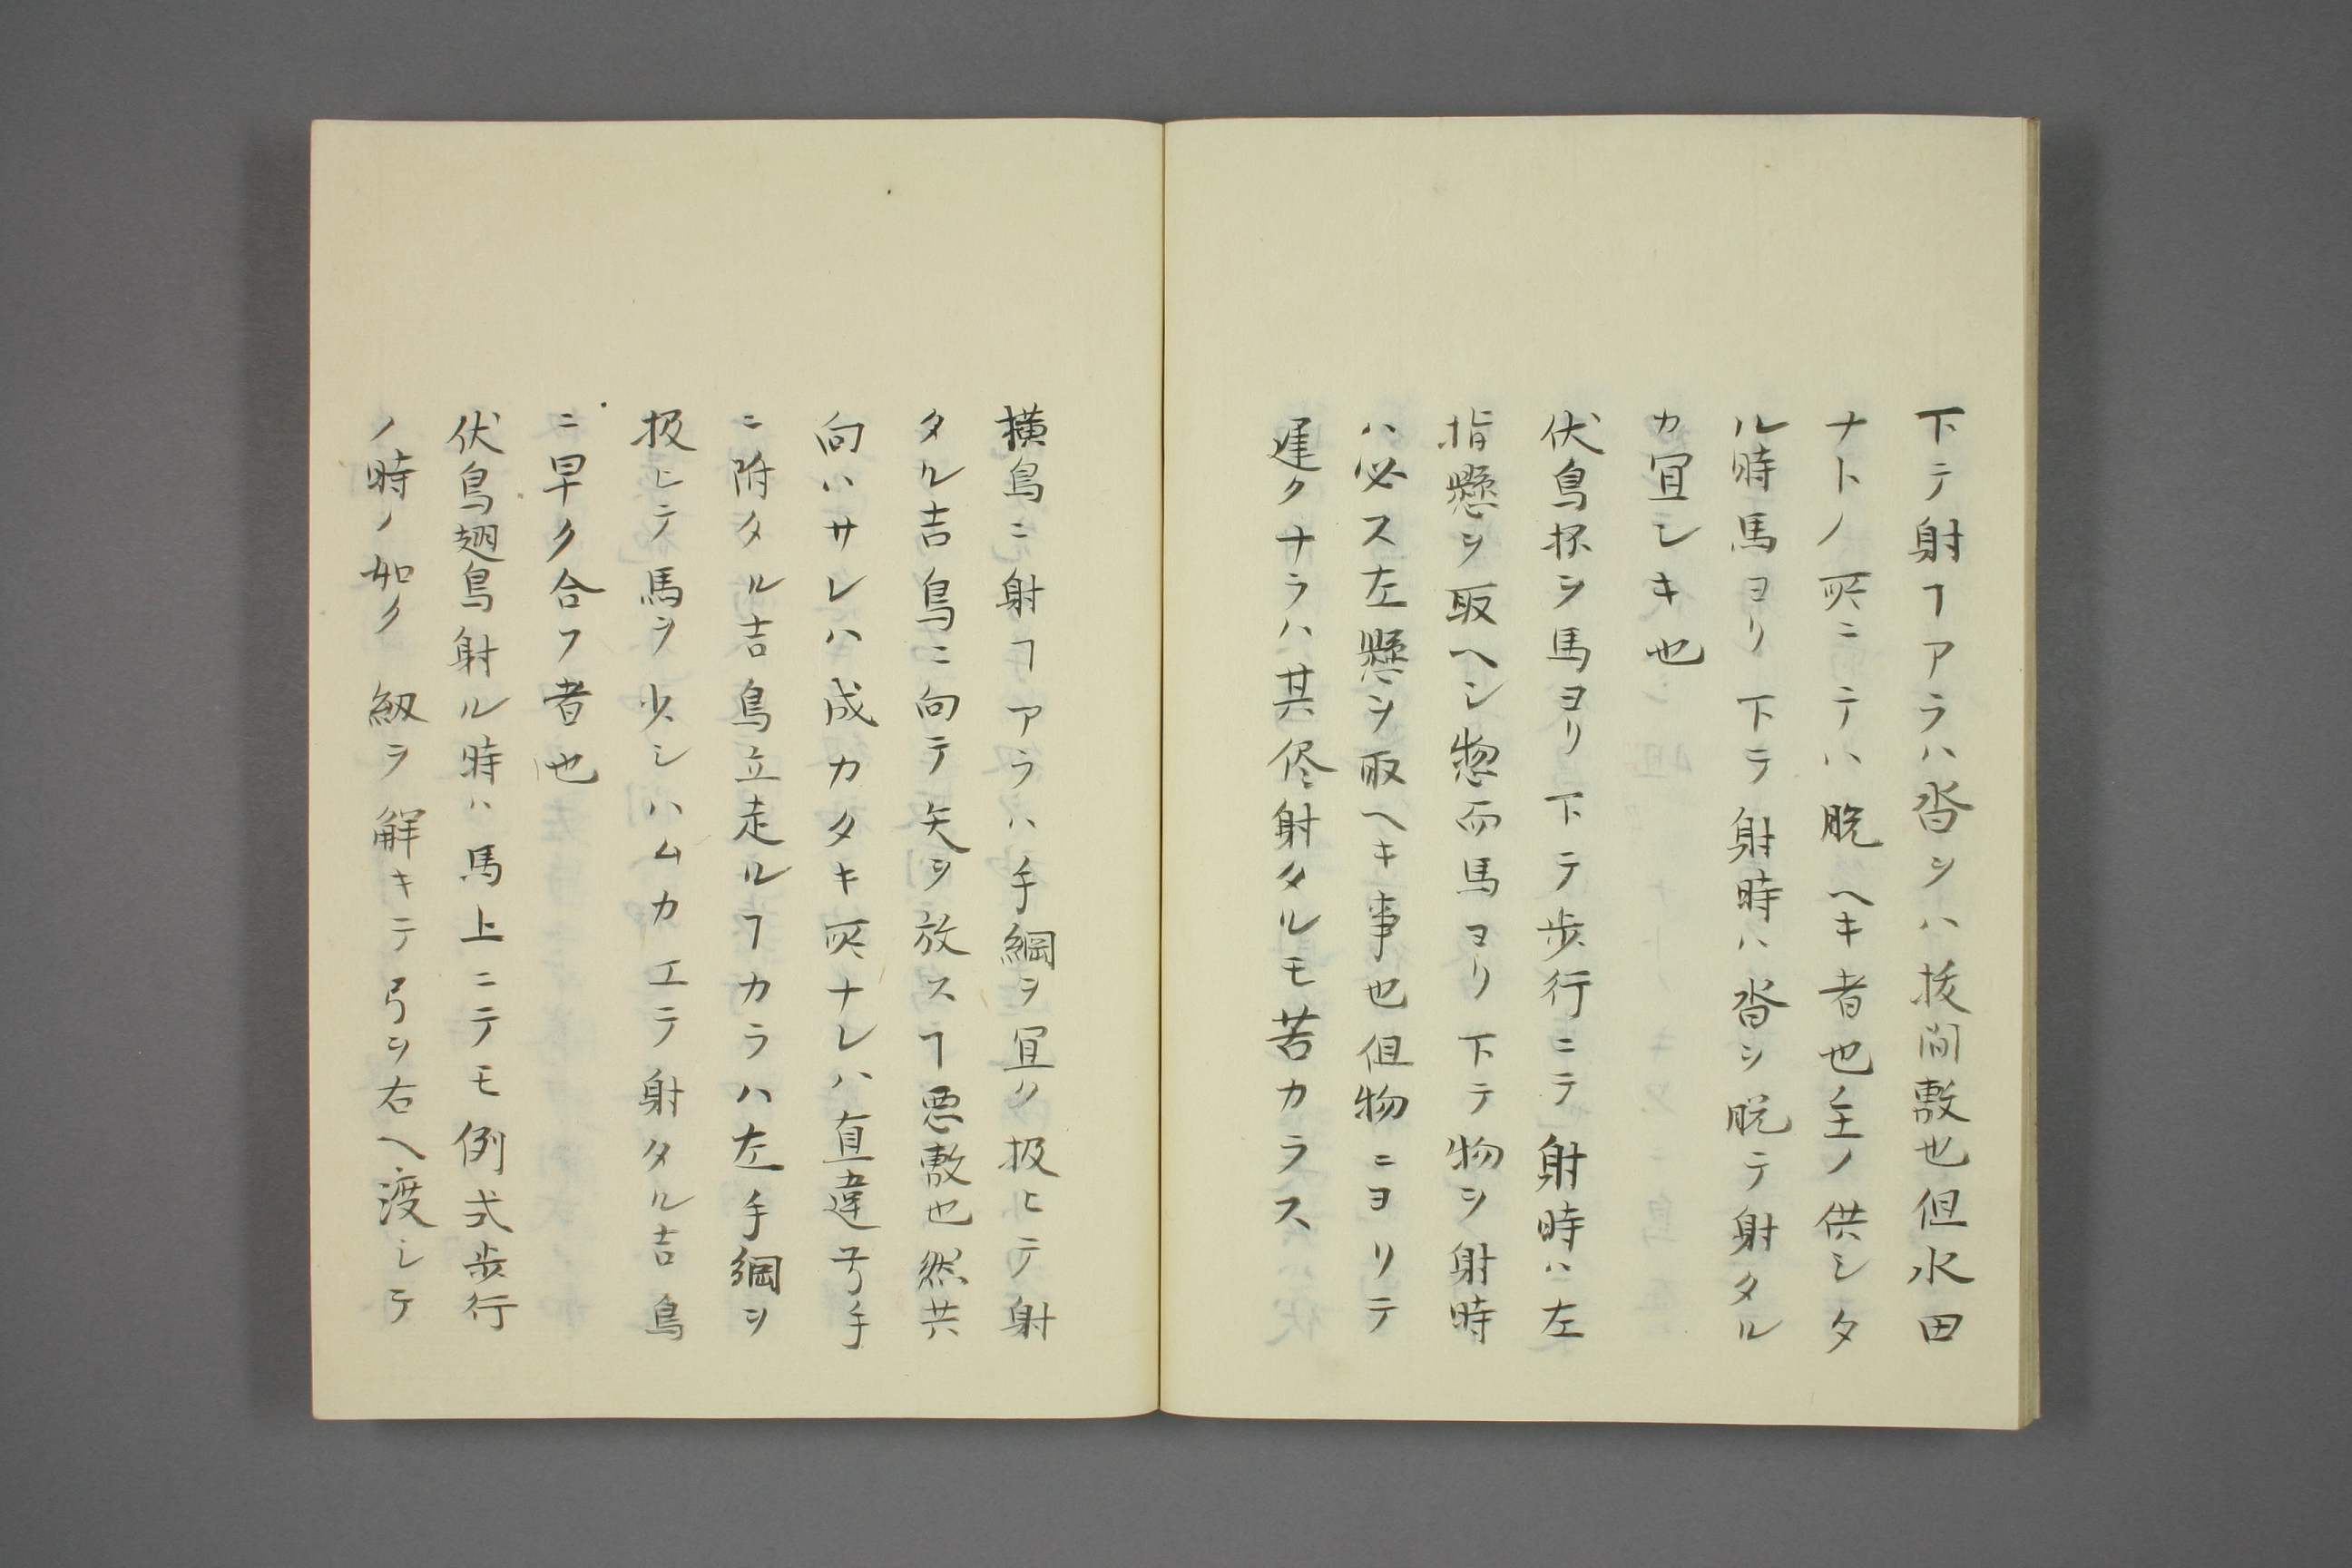 下テ射ヿアラハ沓ヲハ抜間敷也但水田
ナトノ㪽ニテハ脱ヘキ者也主ノ供シタ
ル時馬ヨリ下テ射時ハ沓ヲ脱テ射タル
カ宜シキ也
伏鳥抔ヲ馬ヨリ下テ歩行ニテ射時ハ左
指懸ヲ取ヘシ惣而馬ヨリ下テ物ヲ射時
ハ必ス左懸ヲ取ヘキ事也但物ニヨリテ
遅クナラハ其侭射タルモ苦カラス
横鳥ニ射ヿアラハ手綱ヲ宜ク扱ヒテ射
タル吉鳥ニ向テ矢ヲ放スヿ悪敷也然共
向ハサレハ成カタキ㪽ナレハ直違弓手
ニ附タル吉鳥立走ルヿカラハ左手綱ヲ
扱ヒテ馬ヲ少シハムカエテ射タル吉鳥
ニ早ク合フ者也
伏鳥翅鳥射ル時ハ馬上ニテモ例式歩行
ノ時ノ如ク紐ヲ解キテ弓ヲ右ヘ渡シテ